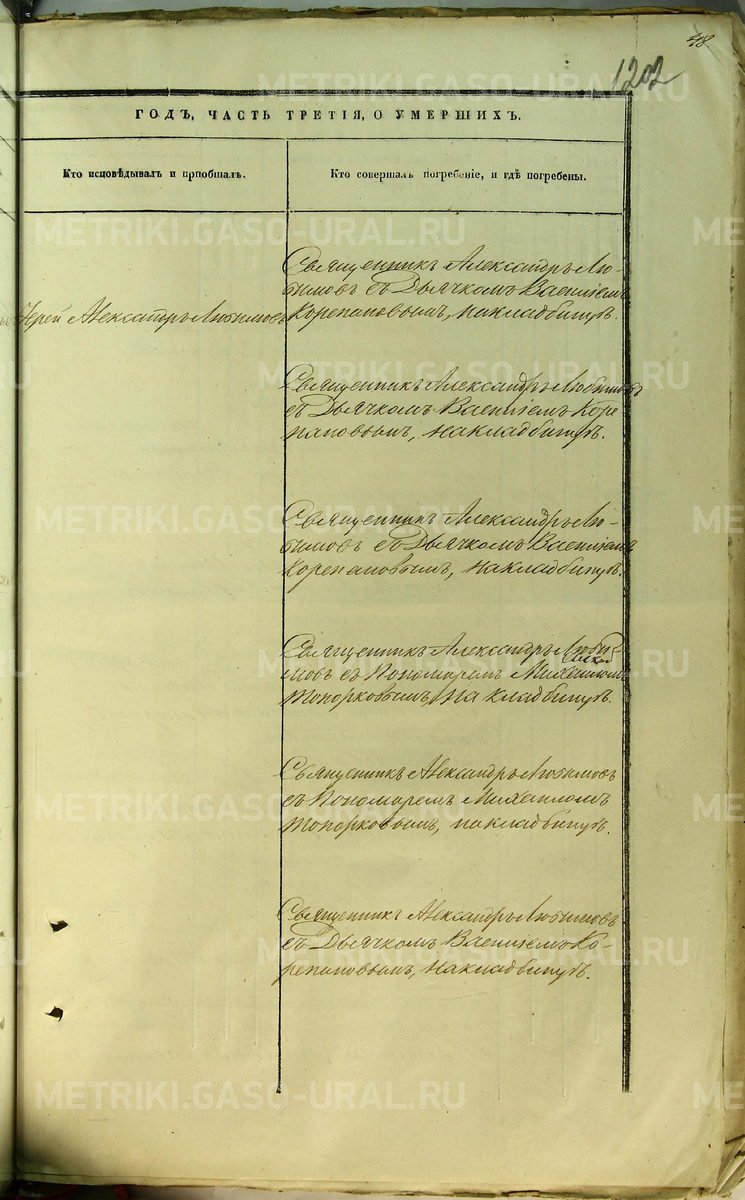 48.
1202
ГОДЪ, ЧАСТЬ ТРЕТІЯ, О УМЕРШИХЪ.
Кто исповѣдывалъ и пріобщалъ.
Кто совершалъ погребеніе, и гдѣ погребены.
Священникъ Александръ Лю-
бимовъ съ Дьячкомъ Василіемъ
Іерей Александръ Любимовъ
Корепановымъ, на кладбищѣ.
Священникъ Александръ Любимовъ
съ Дьячкомъ Василіемъ Коре-
пановымъ, на кладбищѣ.
Священникъ Александръ Лю-
бимовъ съ Дьячкомъ Василіемъ
Корепановымъ, на кладбищѣ.
Священникъ Александръ Люби-
мовъ съ Пономаремъ Михаиломъ
Топорковымъ, На кладбищѣ.
Священникъ Александръ Любимовъ
съ Пономаремъ Михаиломъ
Топорковымъ, на кладбищѣ.
Священникъ Александръ Любимовъ
съ Дьячкомъ Василіемъ Ко-
репановымъ, на кладбищѣ.
METRIKI.GASO-URAL.RU